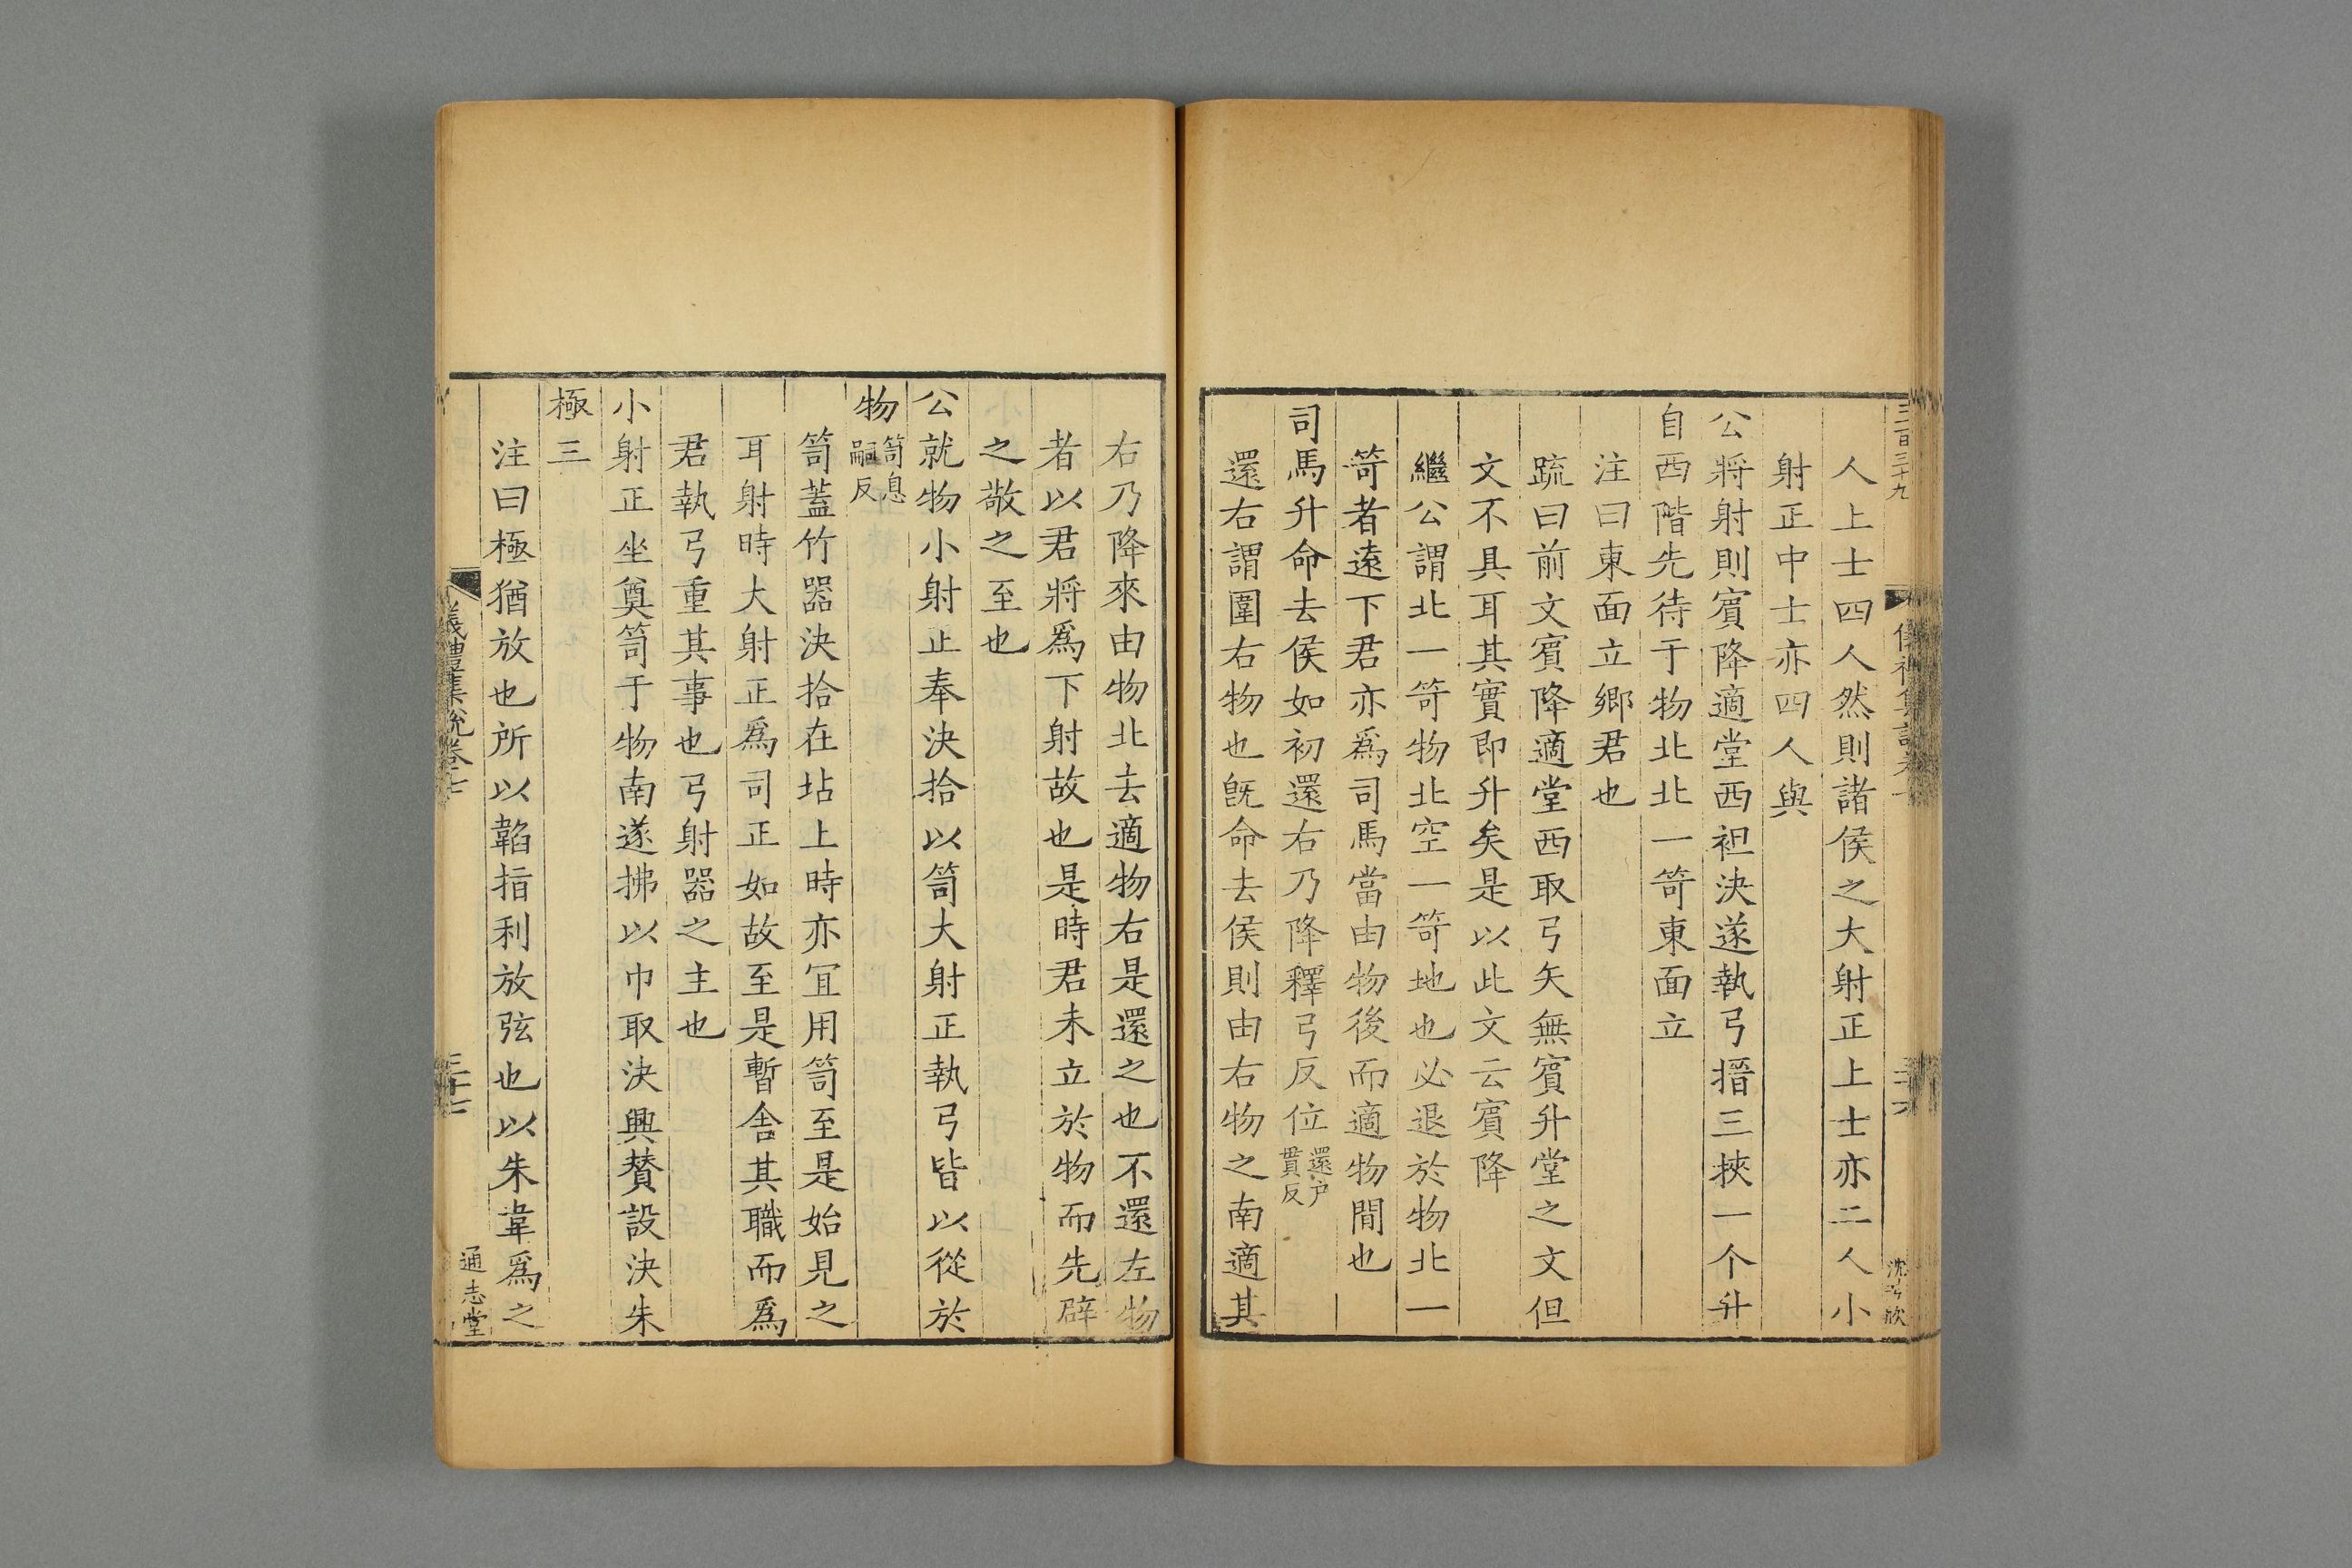 三百三十九
人上士四人然則諸侯之大射正上士亦二人小
射正中士亦四人與
公將射則賔降適堂西袒決遂執弓搢三挾一个升
自西階先待于物北北一笴東面立
注曰東面立鄉君也
疏曰前文賔降適堂西取弓矢無賔升堂之文但
文不具耳其實即升矣是以此文云賔降
繼公謂北一笴物北空一笴地也必退於物北一
笴者遠下君亦爲司馬當由物後而適物間也
司馬升命去侯如初還右乃降釋弓反位還户貫反
還右謂圍右物也旣命去侯則由右物之南適其
右乃降來由物北去適物右是還之也不還左物
者以君將爲下射故也是時君未立於物而先辟
之敬之至也
公就物小射正奉決拾以笥大射正執弓皆以從於
物笥息嗣反
笥蓋竹器決拾在坫上時亦冝用笥至是始見之
耳射時大射正爲司正如故至是暫舎其職而爲
君執弓重其事也弓射器之主也
小射正坐奠笥于物南遂拂以巾取決興賛設決朱
極三
注曰極猶放也所以韜指利放弦也以朱韋爲之
儀禮集說卷七
三十七
通志堂